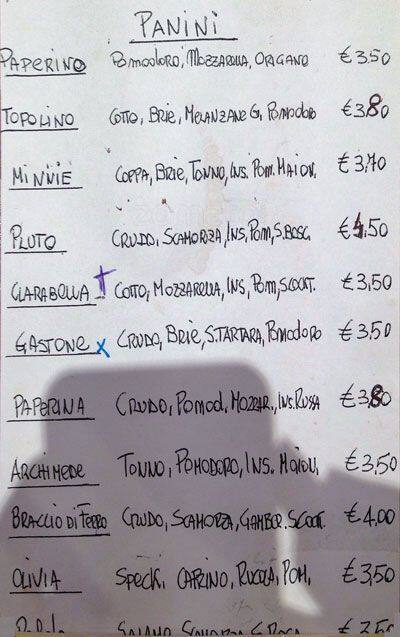 PANINI
PAPERINO POMODORO, MOZZARELLA, ORIGANO €3,50
TOPOLINO COTTO, BRIE, MELANZANE G, POMODORO €3,80
MINNIE COPPA, BRIE, TONNO, INS. POM. MAION. €3,70
PLUTO CRUDO, SCAMORZA, INS, POM, S.BOSC. €4,50
CLARABELLA COTTO, MOZZARELLA, INS, POM, S.COCKT. €3,50
GASTONE x CRUDO, BRIE, S.TARTARA, POMODORO €3,50
PAPERINA CRUDO, POMOD., MOZZAR., INS. RUSSA €3,80
ARCHIMEDE TONNO, POMODORO, INS. MAION. €3,50
BRACCIO DI FERRO CRUDO, SCAMORZA, GAMBER. S.COCKT. €4,00
OLIVIA SPECK, CAPRINO, RUCOLA, POM. €3,50
SALAMO €3,50